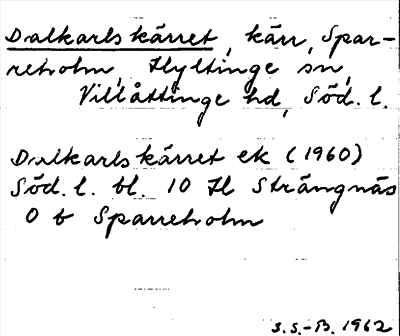 Dalkarlskärret, kärr, Spar-
reholm, Hyltinge sn,
Villåttinge hd, Söd. l.
Dalkarlskärret ek (1960)
Söd. l. bl. 10 Il Strängnäs
O b Sparreholm
S.S.-B. 1962